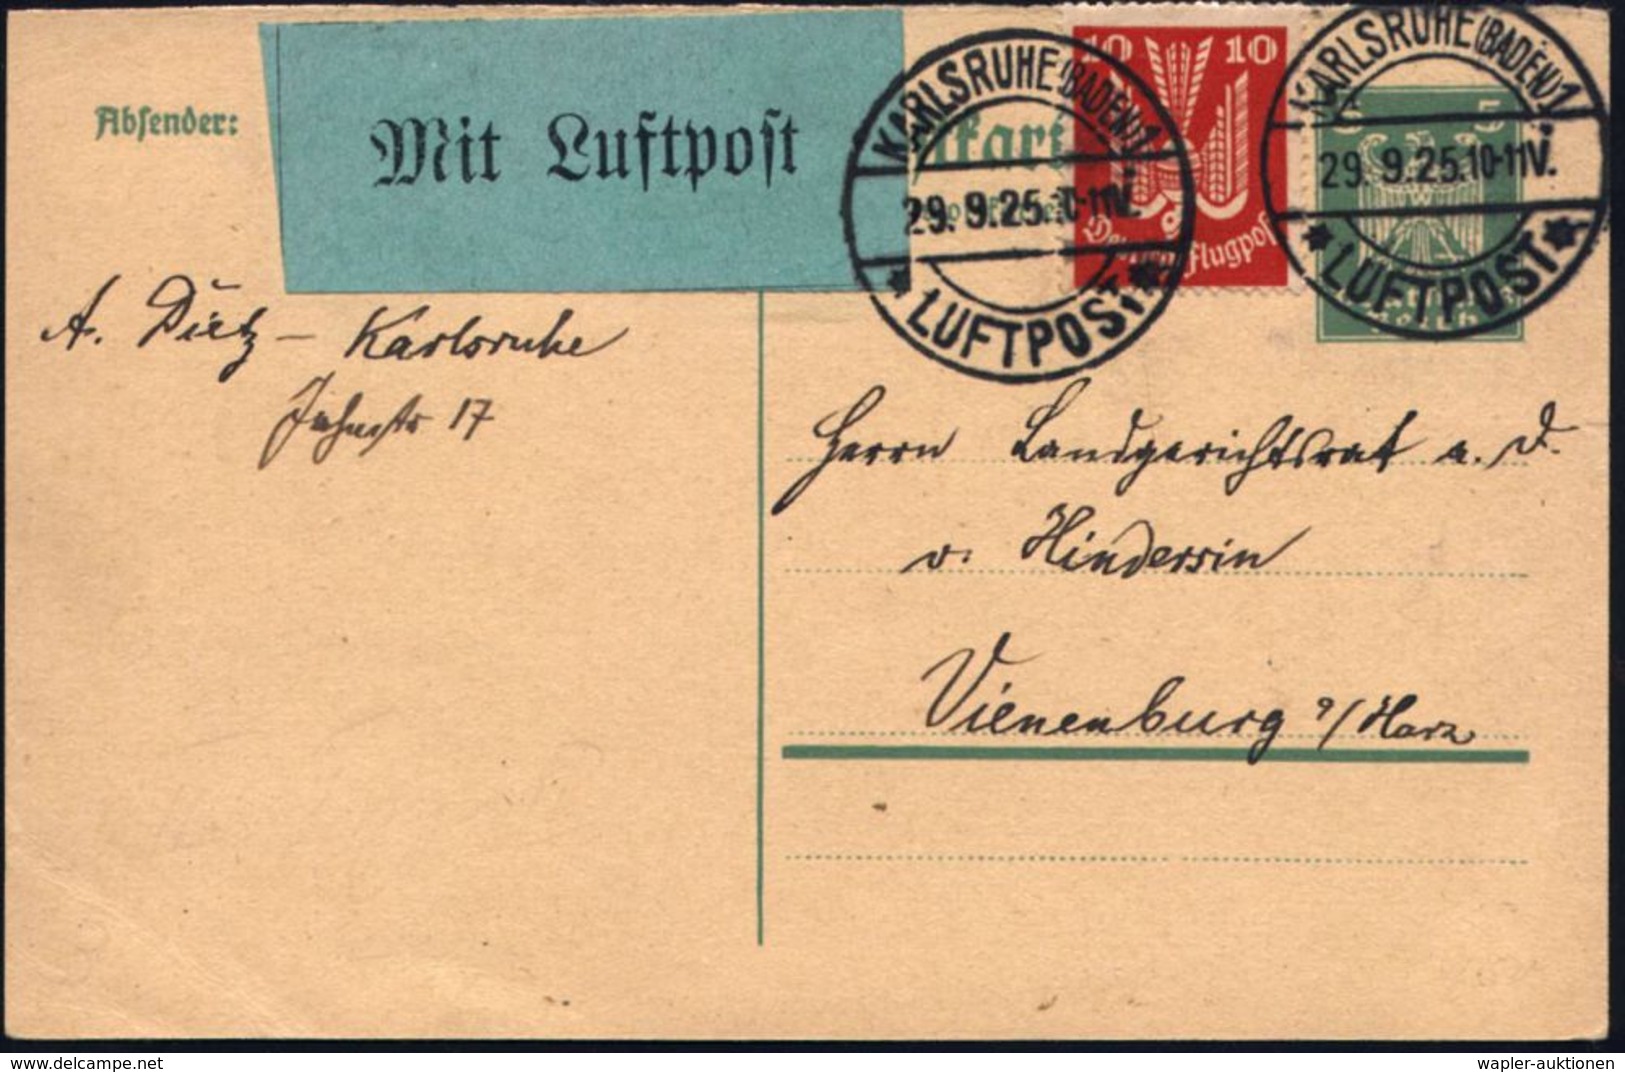 Absender:
Mit Luftpost
KARLSRUHE (BADEN) 1
29.9.25.10-11V.
* LUFTPOST *
10 10
Deutsche Flugpost
KARLSRUHE (BADEN) 1
29.9.25.10-11V.
* LUFTPOST *
5 5
Reich
A. Dietz – Karlsruhe
Jahnstr 17
Herrn Landgerichtsrat a. D.
v. Hindersin
Vienenburg a/Harz
delcampe.net
wapler-auktionen